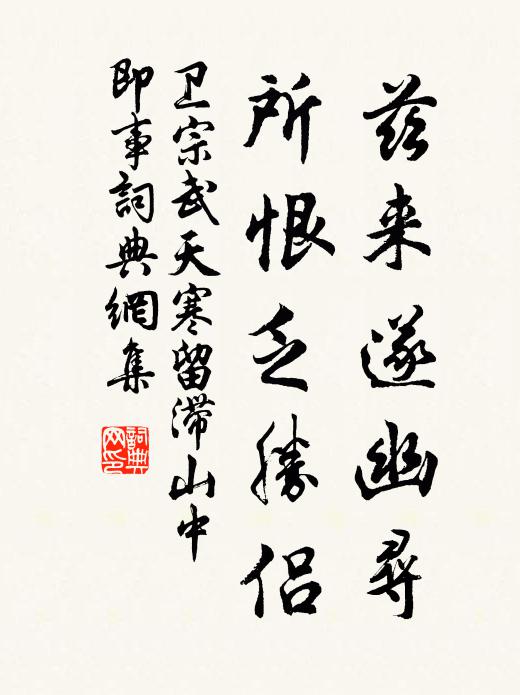 茲来遂幽尋
所恨乏勝侣
卫宗武天寒留滞山中
即事詞典網集
詞典
网印